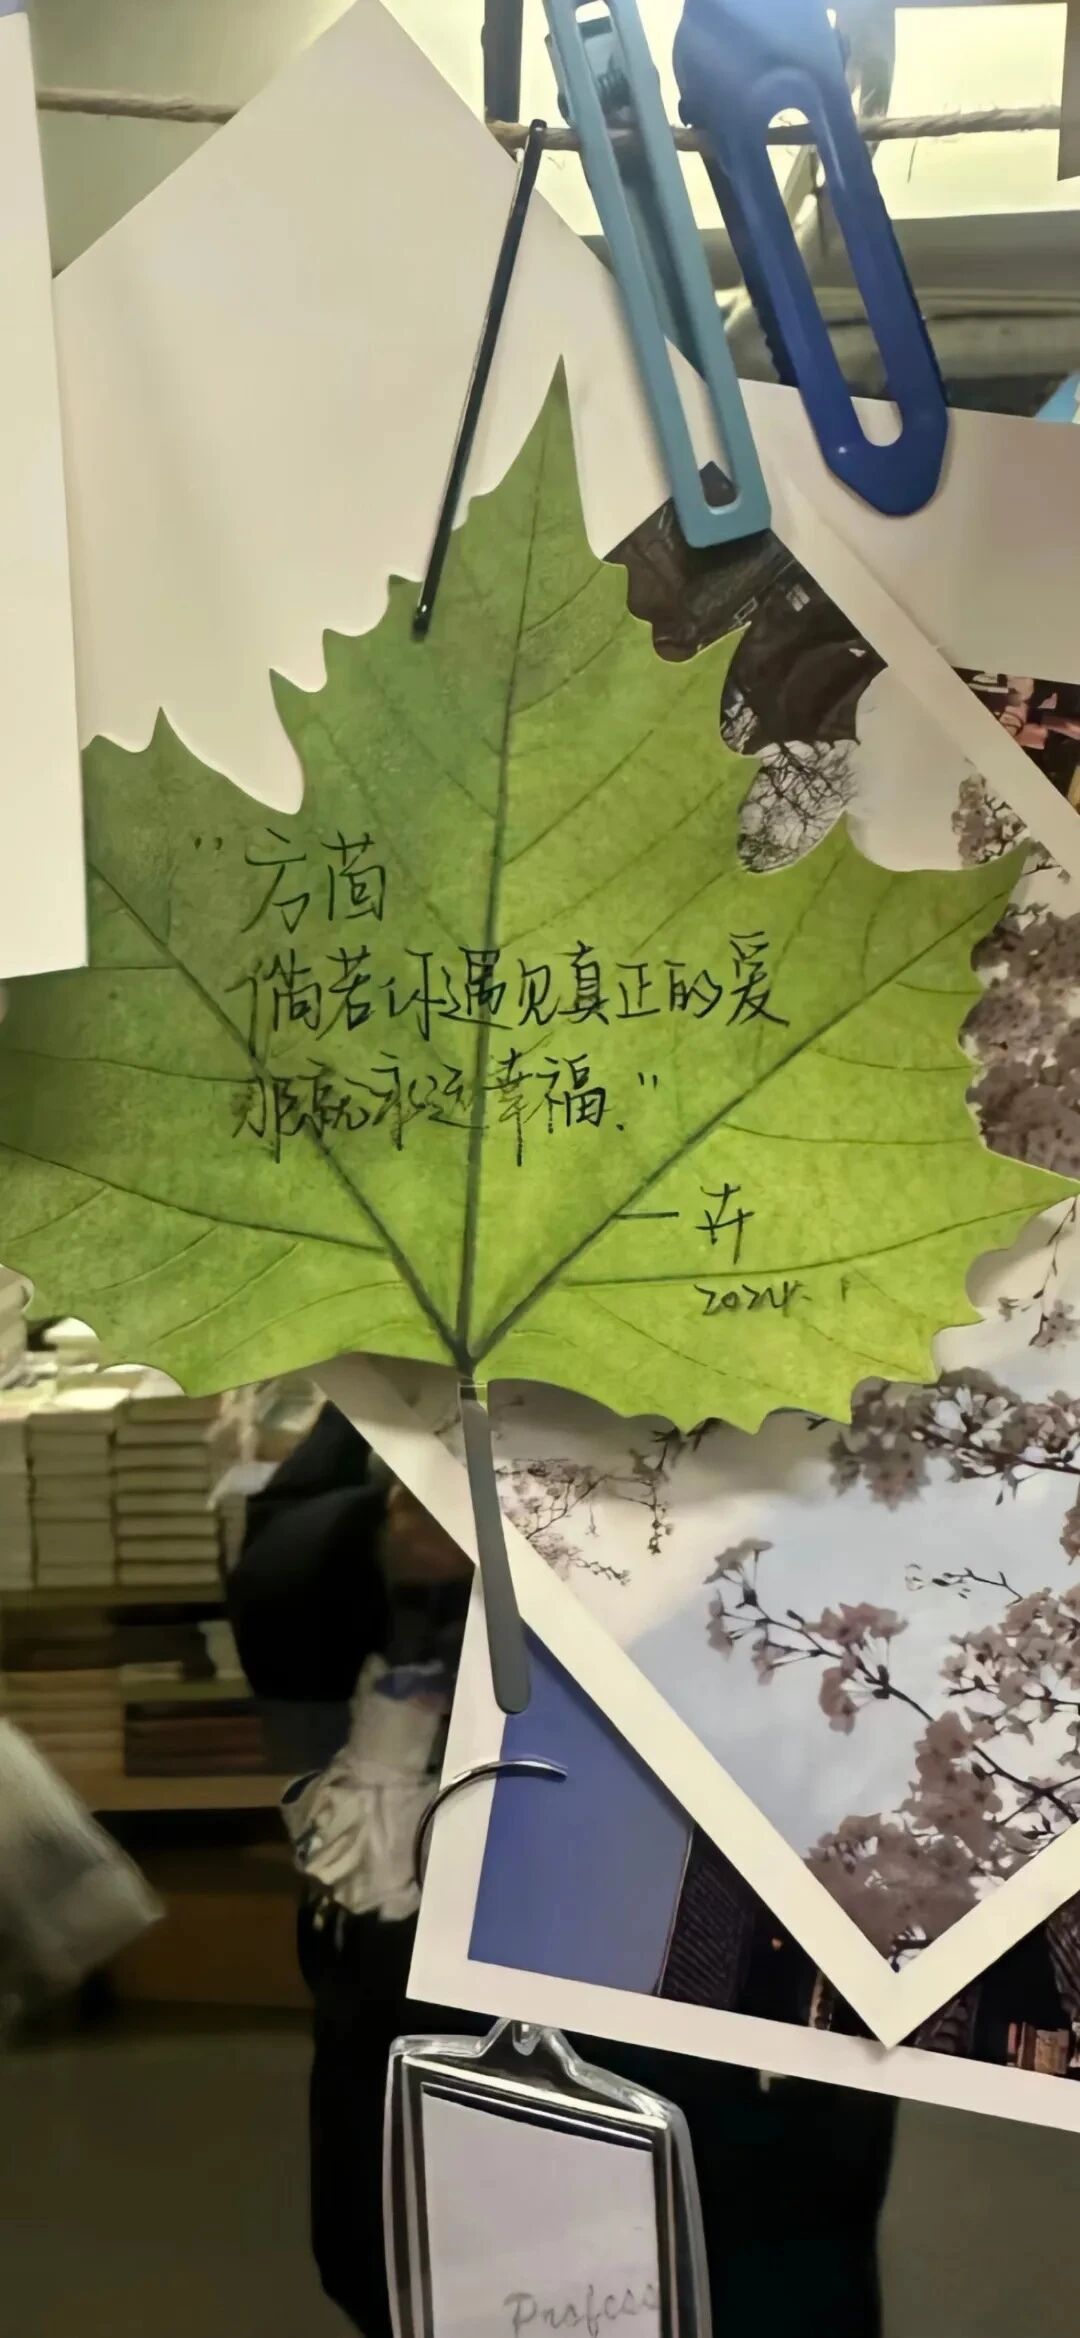 "方茴
倘若你遇见真正的爱
那就永远幸福."
—卉
2024.1
Profess